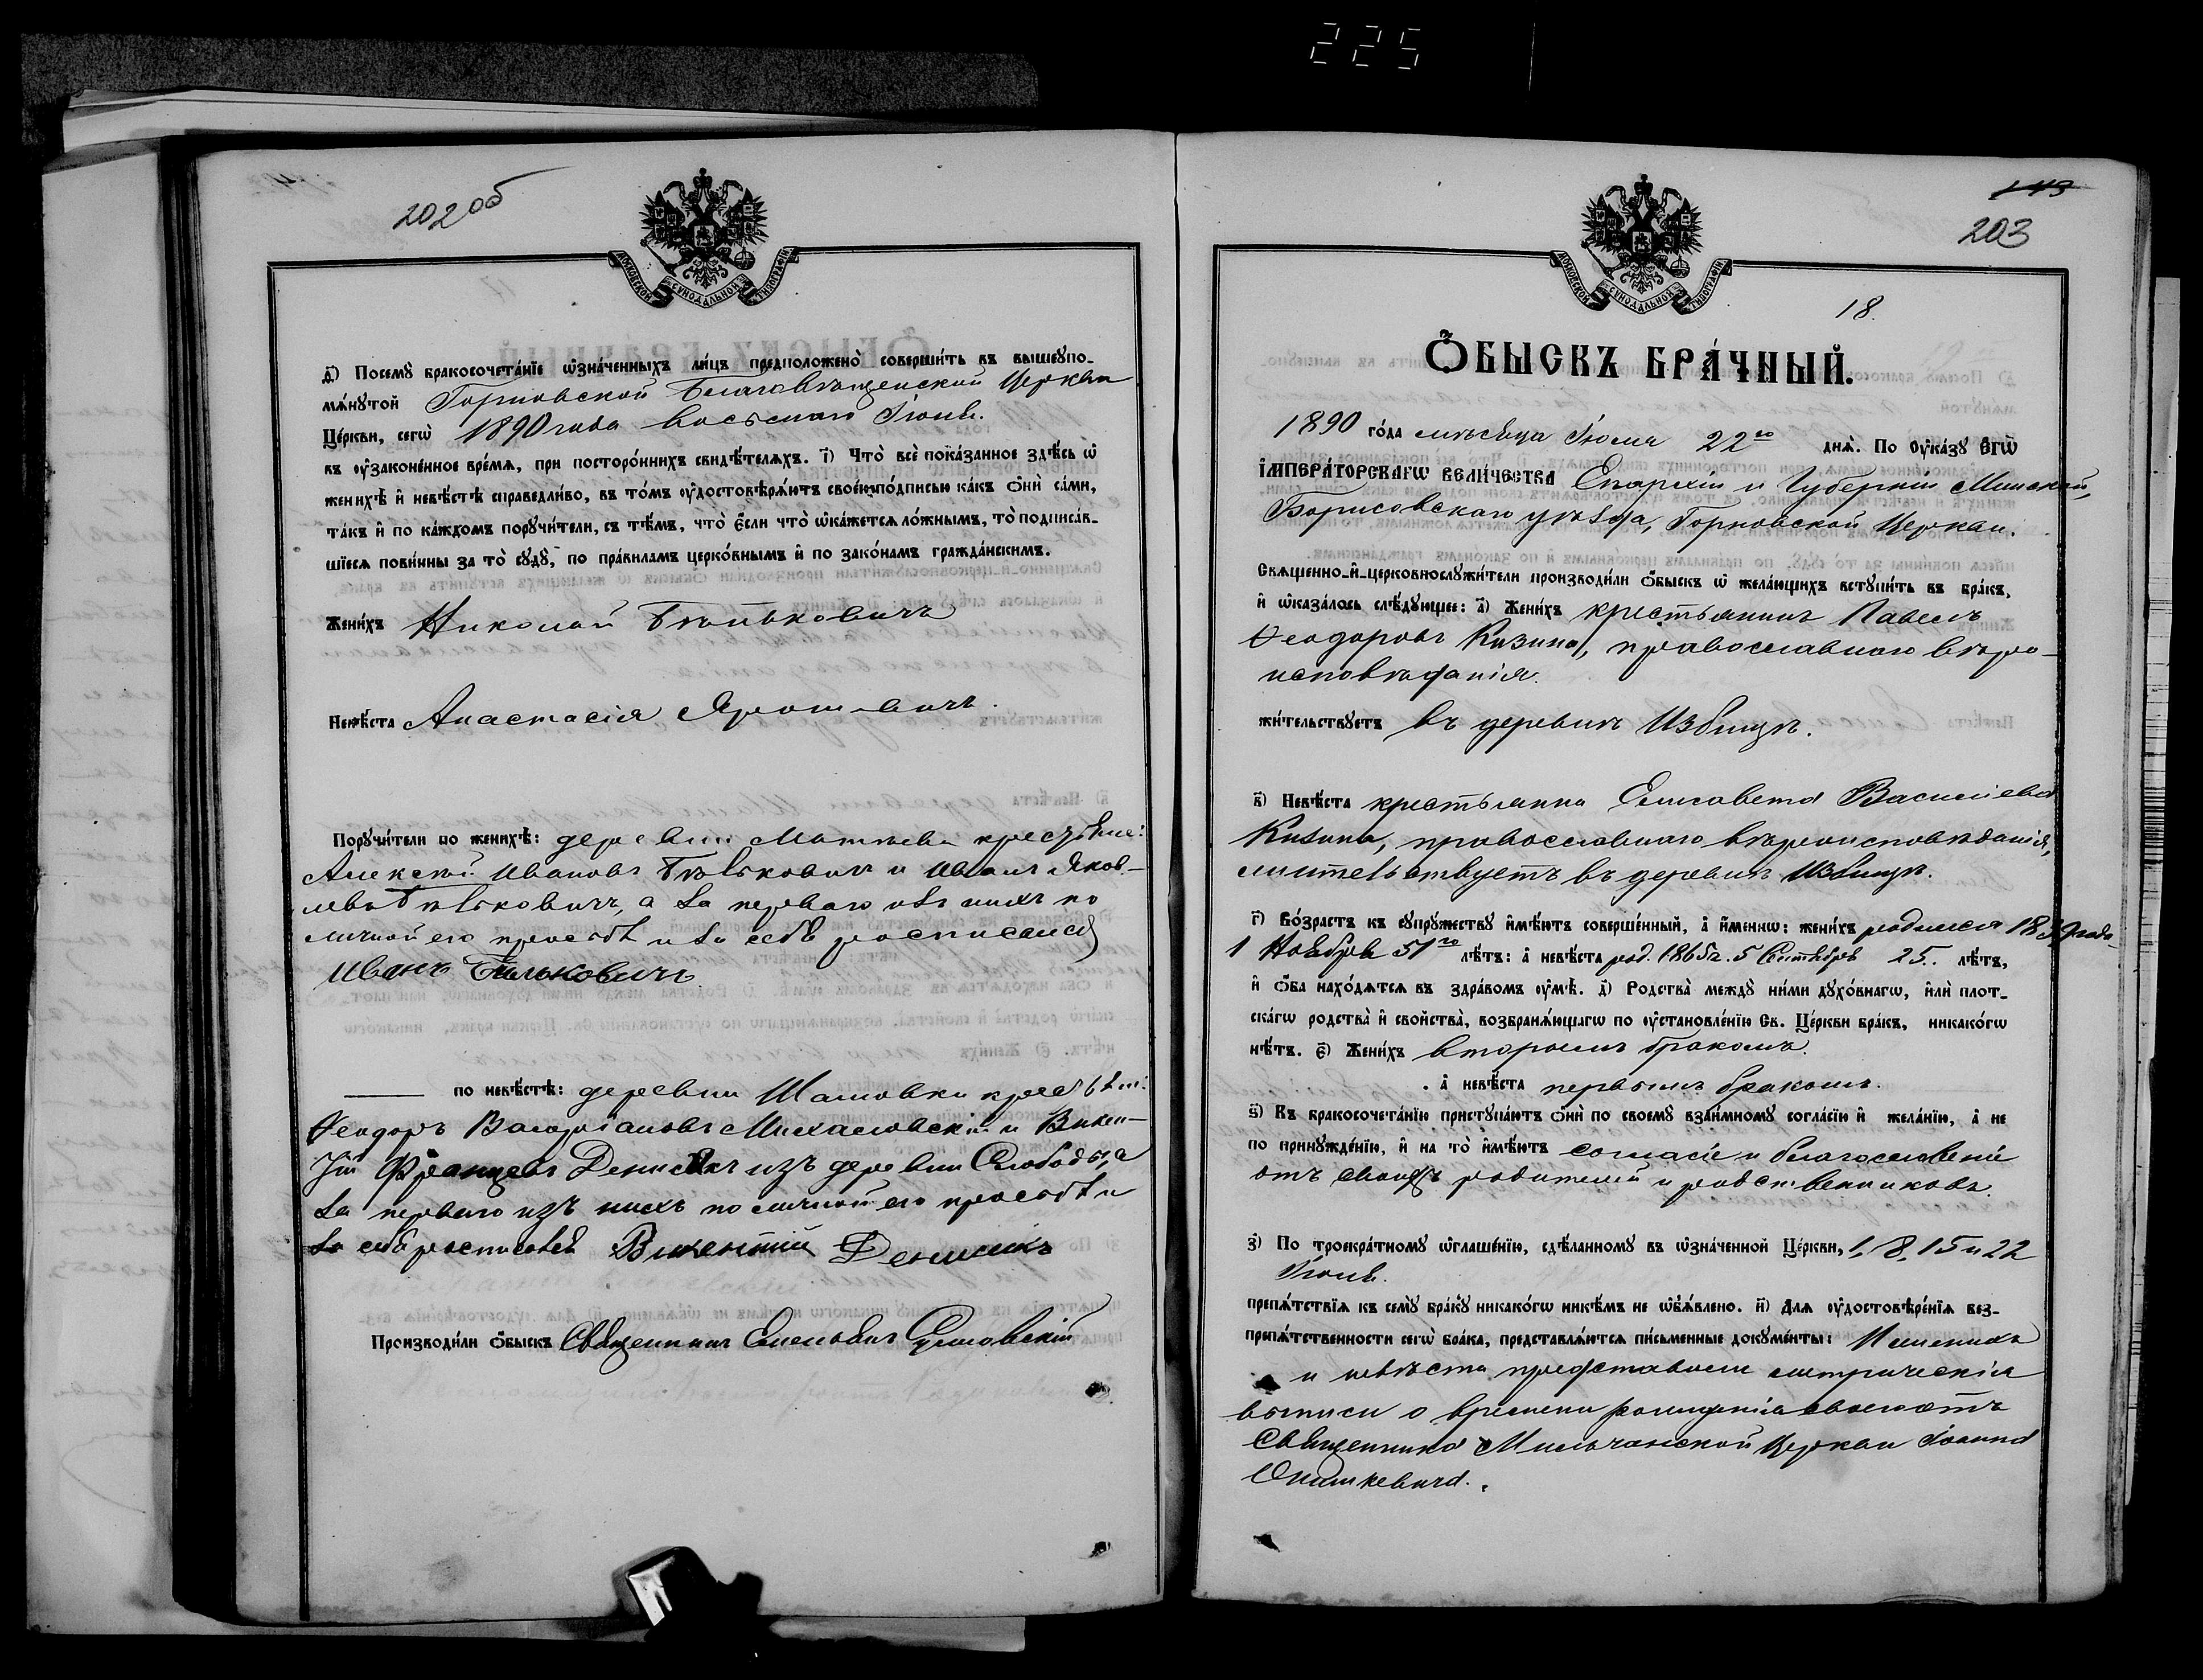 225
202 об
МОСКОВСКОЙ СѴНОДАЛЬНОЙ ТИПОГРАФІИ
д҃і) Посемꙋ̀ бракосочета́нїе ѡ҆зна́ченныхъ ли́цъ предположено̀ соверши́ть въ вышеꙋпо-
мѧ́нꙋтой Горновской Благовѣщенской Церкви
Це́ркви, сегѡ̀ 1890 года восьмаго Іюля.
въ ᲂу҆зако́ненное вре́мѧ, при посторо́ннихъ свидѣ́телѧхъ. і҃) Что̀ всѐ пока́занное здѣ́сь ѡ҆
женихѣ̀ и҆ невѣ́стѣ справедли́во, въ то́мъ ᲂу҆достовѣрѧ́ютъ свое́ю по́дписью ка́къ ѻ҆нѝ са́ми,
та́къ и҆ по ка́ждомъ порꙋчи́тели, съ тѣ́мъ, что̀ є҆́сли что̀ ѡ҆ка́жетсѧ ло́жнымъ, то̀ подписа́в-
шїесѧ пови́нны за то̀ сꙋдꙋ̀, по пра́виламъ церко́внымъ и҆ по зако́намъ гражда́нскимъ.
Жени́хъ Николай Бѣльковичъ
Невѣ́ста Анастасія Ярошевичъ.
Порꙋчи́тели по женихѣ̀: деревни Матѣева крестьяне:
Алексѣй Ивановъ Бѣльковичъ и Иванъ Яков-
левъ Бѣльковичъ, а за перваго изъ нихъ по
личной его просьбѣ и за себя росписался
Иванъ Бѣльковичъ
по невѣ́стѣ: деревни Шамовки крестьян:
Ѳеодоръ Валеріановъ Михаловскій и Викен-
тій Францевъ Денисикъ изъ деревни Слободы, а
за перваго изъ нихъ по личной его просьбѣ и
за себя росписался Викентій
Производи́ли ѻ҆́быскъ Священникъ
143
203
МОСКОВСКОЙ СѴНОДАЛЬНОЙ ТИПОГРАФІИ
18.
Ѻ҆́БЫСКЪ БРА́ЧНЫЙ.
1890 го́да мѣсяца Іюля 22го днѧ̀. По ᲂу҆ка́зꙋ Є҆ГѠ̀
І҆МПЕРА́ТОРСКАГѠ ВЕЛИ́ЧЕСТВА Епархіи и Губерніи Минской,
Борисовскаго уѣзда, Горновской Церкви.
Свѧще́нно-и҆-церковнослꙋжи́тели производи́ли ѻ҆́быскъ ѡ҆ жела́ющихъ встꙋпи́ть въ бра́къ,
и҆ ѡ҆каза́лось слѣ́дꙋющее: а҃) Жени́хъ крестьянинъ Павелъ
Ѳеодоровъ Кизина, православнаго вѣро-
исповѣданія.
жи́тельствꙋетъ въ деревнѣ Избищѣ.
в҃) Невѣ́ста крестьянка Елисавета Василіева
Кизина, православнаго вѣроисповѣданія,
жительствуетъ въ деревнѣ Избищѣ.
г҃) Во́зрастъ къ сꙋпрꙋ́жествꙋ и҆мѣ́ютъ соверше́нный, а҆ и҆́меннѡ: жени́хъ родился 1839 года
1 Ноября 51го лѣ́тъ: а҆ невѣ́ста род. 1865 г. 5 Сентября 25. лѣ́тъ,
и҆ ѻ҆́ба нахо́дѧтсѧ въ здра́вомъ ᲂу҆мѣ̀. д҃) Родства̀ междꙋ̀ ни́ми дꙋхо́внагѡ, и҆лѝ плот-
ска́гѡ родства̀ и҆ сво́йства, возбранѧ́ющагѡ по ᲂу҆становле́нїю Св. Це́ркви бра́къ, никако́гѡ
нѣ́тъ. є҃) Жени́хъ вторымъ бракомъ.
а҆ невѣ́ста первымъ бракомъ.
ѕ҃) Къ бракосочета́нїю пристꙋпа́ютъ ѻ҆нѝ по своемꙋ̀ взаи́мномꙋ согла́сїю и҆ жела́нїю, а҆ не
по принꙋжде́нїю, и҆ на то̀ и҆мѣ́ютъ согласіе и благословеніе
отъ своихъ родителей и родственниковъ.
з҃) По троекра́тномꙋ ѡ҆глаше́нїю, сдѣ́ланномꙋ въ ѡ҆зна́ченной Це́ркви, 1, 8, 15 и 22
Іюля.
препѧ́тствїѧ къ семꙋ̀ бра́кꙋ никако́гѡ никѣ́мъ не ѡ҆б̾ѧ́влено. и҃) Длѧ ᲂу҆достовѣре́нїѧ без-
препѧ́тственности сегѡ̀ бра́ка, представлѧ́ютсѧ пи́сьменные докꙋме́нты: Женихъ
и невѣста представили метрическія
выписи о времени рожденія своего отъ
Священника Мильчанской Церкви Іоанна
Онишкевича.